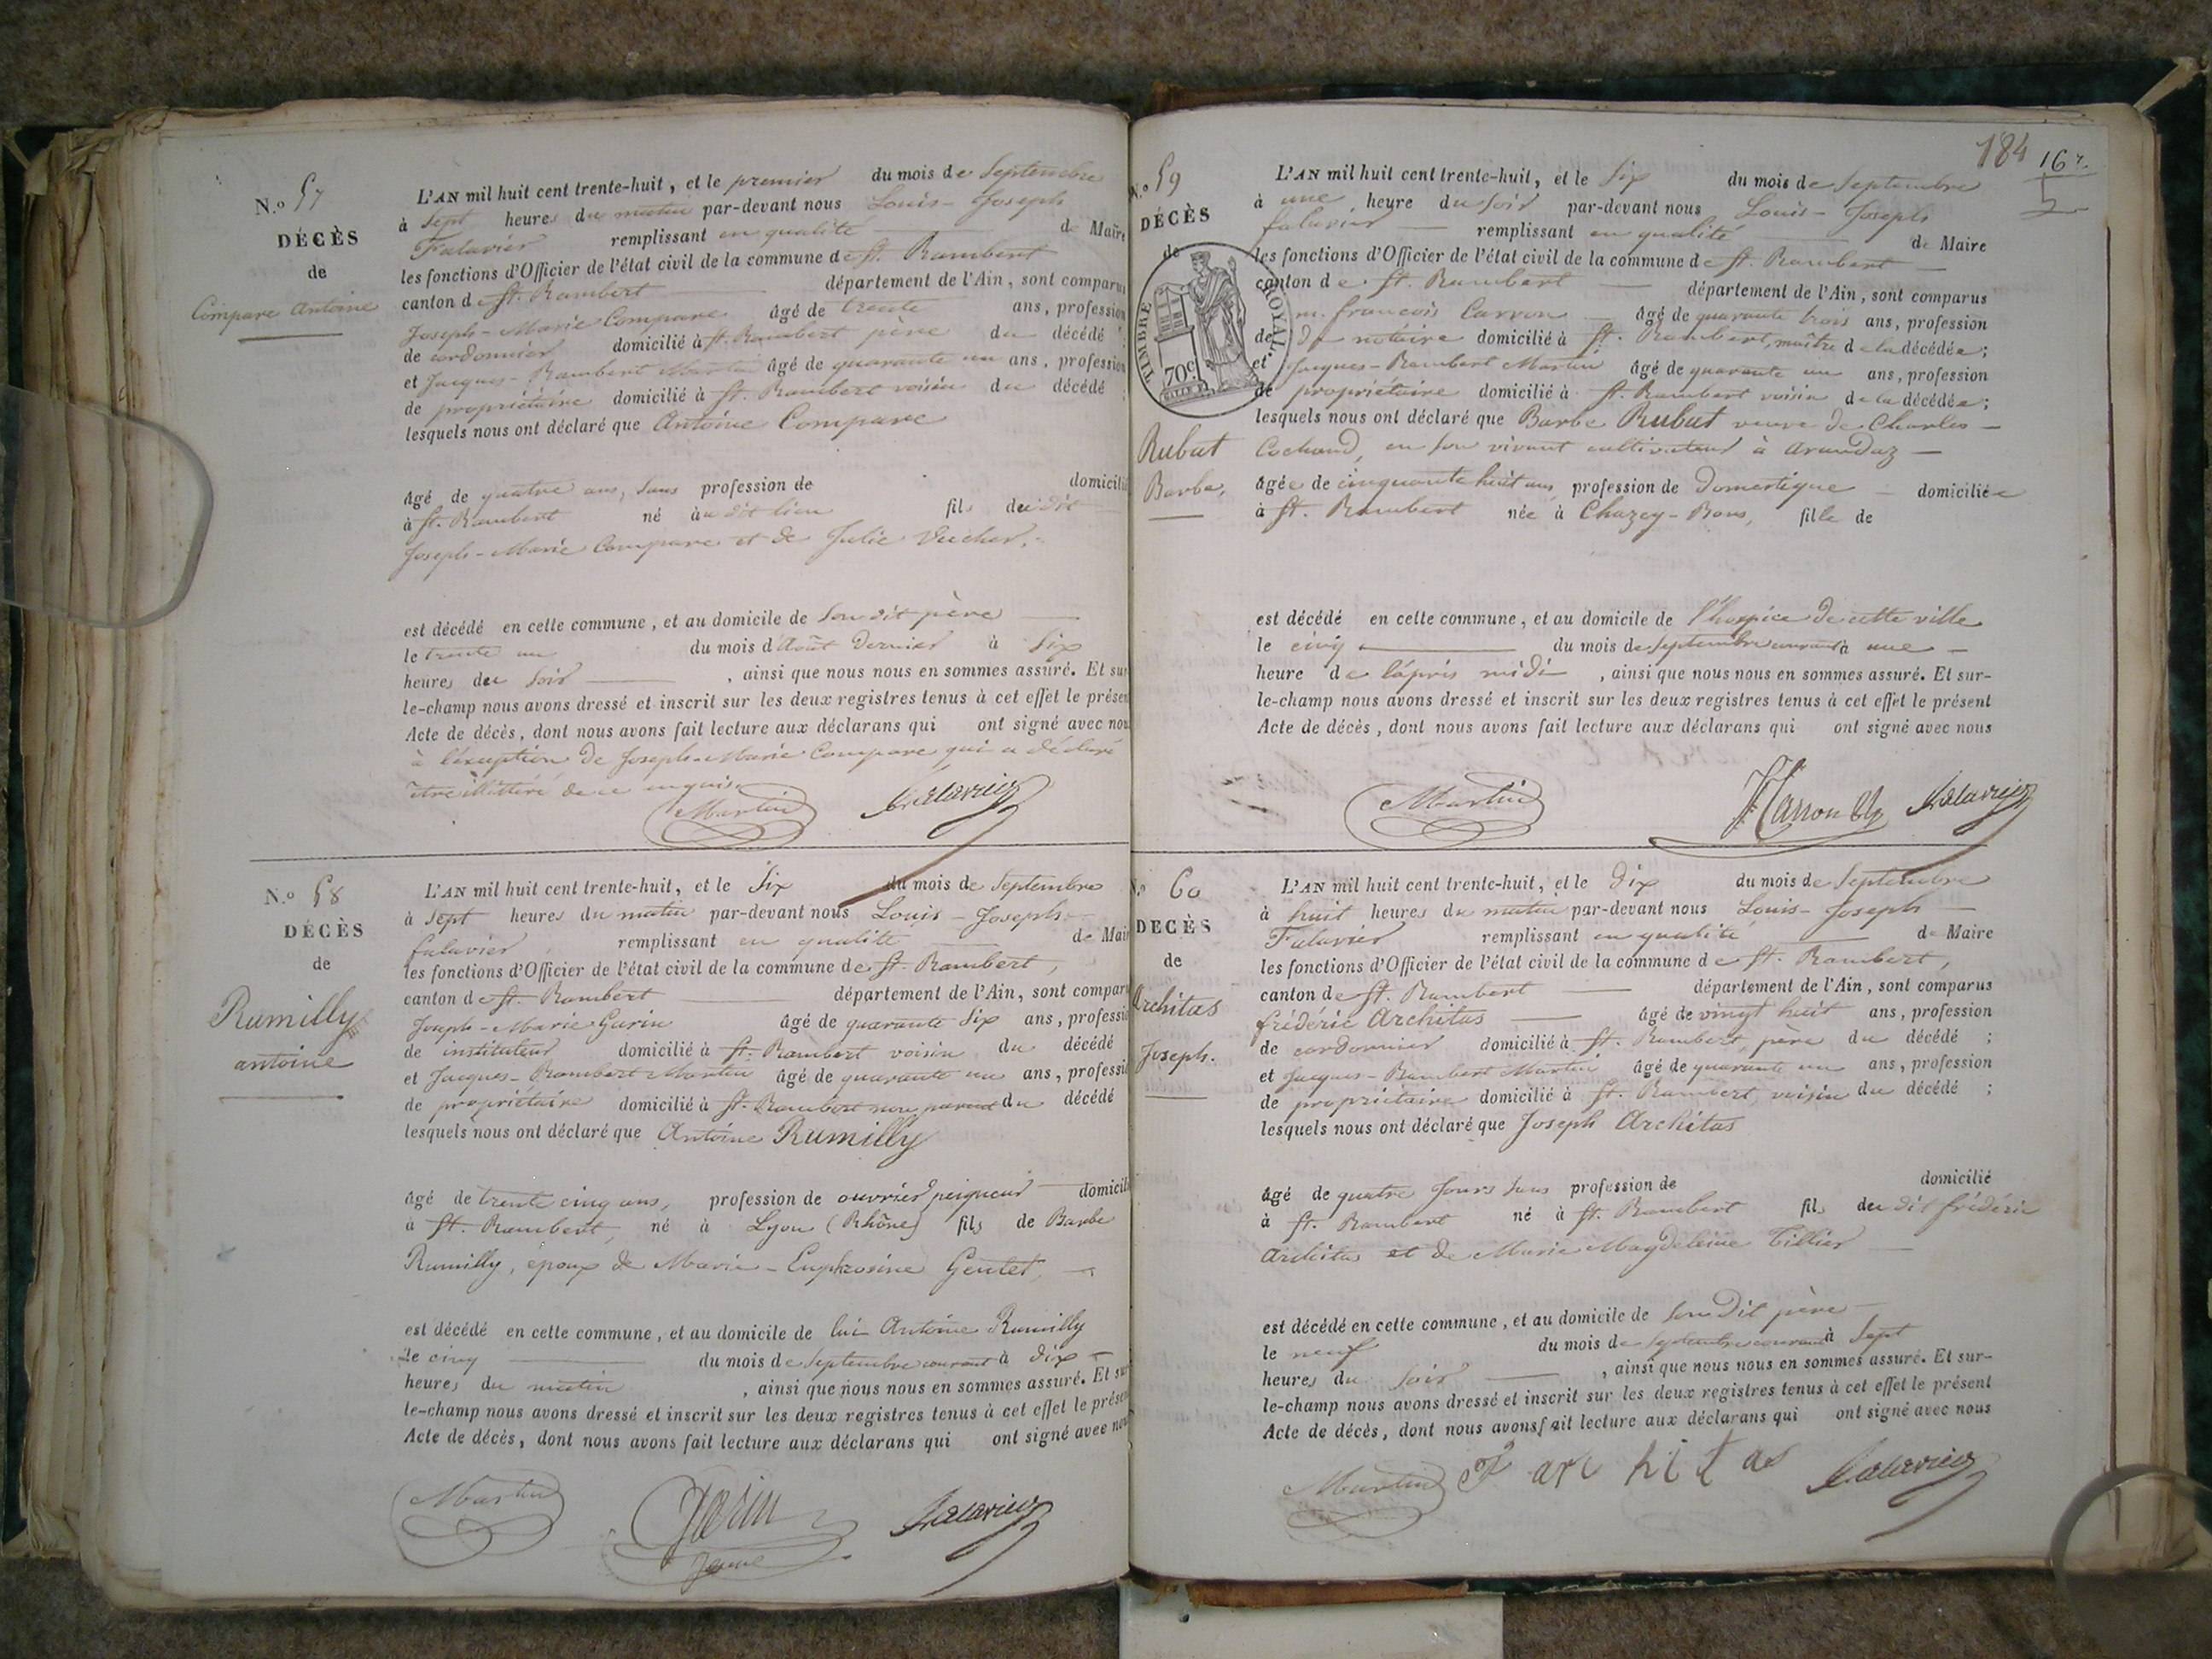 N.o 57
DÉCÈS
de
Compare Antoine
L'AN mil huit cent trente-huit, et le premier du mois de Septembre
à Sept heures du matin par-devant nous Louis-Joseph
Falavier remplissant en qualité de Maire
les fonctions d'Officier de l'état civil de la commune de St. Rambert
canton de St. Rambert département de l'Ain, sont comparus
Joseph-Marie Compare âgé de trente ans, profession
de cordonnier domicilié à St. Rambert père du décédé ;
et Jacques-Rambert Martin âgé de quarante un ans, profession
de propriétaire domicilié à St. Rambert voisin du décédé ;
lesquels nous ont déclaré que Antoine Compare
âgé de quatre ans, sans profession de domicilié
à St. Rambert né au dit lieu fils du dit
Joseph-Marie Compare et de Julie
est décédé en cette commune, et au domicile de Son dit père
le trente un du mois d'Août dernier à Six
heures du Soir , ainsi que nous nous en sommes assuré. Et sur
le-champ nous avons dressé et inscrit sur les deux registres tenus à cet effet le présent
Acte de décès, dont nous avons fait lecture aux déclarans qui ont signé avec nous
à l'exception de Joseph-Marie Compare qui a déclaré
être illitéré de ce enquis.
Martin Falavier
N.o 58
DÉCÈS
de
Rumilly
antoine
L'AN mil huit cent trente-huit, et le Six du mois de Septembre
à Sept heures du matin par-devant nous Louis-Joseph
falavier remplissant en qualité de Maire
les fonctions d'Officier de l'état civil de la commune de St. Rambert,
canton de St. Rambert département de l'Ain, sont comparus
Joseph-Marie Garin âgé de quarante Six ans, profession
de instituteur domicilié à St. Rambert voisin du décédé
et Jacques-Rambert Martin âgé de quarante un ans, profession
de propriétaire domicilié à St. Rambert non parent du décédé
lesquels nous ont déclaré que Antoine Rumilly
âgé de trente cinq ans, profession de ouvrier peigneur domicilié
à St. Rambert, né à Lyon (Rhône) fils de Barbe
Rumilly, époux de Marie-Euphrosine Gentet,
est décédé en cette commune, et au domicile de lui Antoine Rumilly
le cinq du mois de Septembre courant à dix
heures du matin , ainsi que nous nous en sommes assuré. Et sur
le-champ nous avons dressé et inscrit sur les deux registres tenus à cet effet le présent
Acte de décès, dont nous avons fait lecture aux déclarans qui ont signé avec nous
Martin Garin Falavier
Jeune
184 167
5
N.o 59
DÉCÈS
de
TIMBRE ROYAL.
70c
Rubat
Barbe,
L'AN mil huit cent trente-huit, et le Six du mois de Septembre
à une heure du soir par-devant nous Louis-Joseph
falavier remplissant en qualité de Maire
les fonctions d'Officier de l'état civil de la commune de St. Rambert
canton de St. Rambert département de l'Ain, sont comparus
m. françois Carron âgé de quarante trois ans, profession
de notaire domicilié à St. Rambert, maître de la décédée ;
et Jacques-Rambert Martin âgé de quarante un ans, profession
de propriétaire domicilié à St. Rambert voisin de la décédée ;
lesquels nous ont déclaré que Barbe Rubat veuve de Charles
Cochand, en son vivant cultivateur à arandaz
âgée de cinquante huit ans profession de Domestique domiciliée
à St. Rambert née à Chazey-Bons, fille de
est décédé en cette commune, et au domicile de l'hospice de cette ville
le cinq du mois de Septembre courant à une
heure de l'après midi , ainsi que nous nous en sommes assuré. Et sur-
le-champ nous avons dressé et inscrit sur les deux registres tenus à cet effet le présent
Acte de décès, dont nous avons fait lecture aux déclarans qui ont signé avec nous
Martin Carron Falavier
N.o 60
DÉCÈS
de
Architas
Joseph.
L'AN mil huit cent trente-huit, et le Dix du mois de Septembre
à huit heures du matin par-devant nous Louis-Joseph
Falavier remplissant en qualité de Maire
les fonctions d'Officier de l'état civil de la commune de St. Rambert,
canton de St. Rambert département de l'Ain, sont comparus
frédéric Architas âgé de vingt huit ans, profession
de cordonnier domicilié à St. Rambert, père du décédé ;
et Jacques-Rambert Martin âgé de quarante un ans, profession
de propriétaire domicilié à St. Rambert, voisin du décédé ;
lesquels nous ont déclaré que Joseph Architas
âgé de quatre Jours Sans profession de domicilié
à St. Rambert né à St. Rambert fils du dit frédéric
Architas et de Marie Magdeleine Tillier
est décédé en cette commune, et au domicile de Son Dit père
le neuf du mois de Septembre courant à Sept
heures du Soir , ainsi que nous nous en sommes assuré. Et sur-
le-champ nous avons dressé et inscrit sur les deux registres tenus à cet effet le présent
Acte de décès, dont nous avons fait lecture aux déclarans qui ont signé avec nous
Martin F architas Falavier